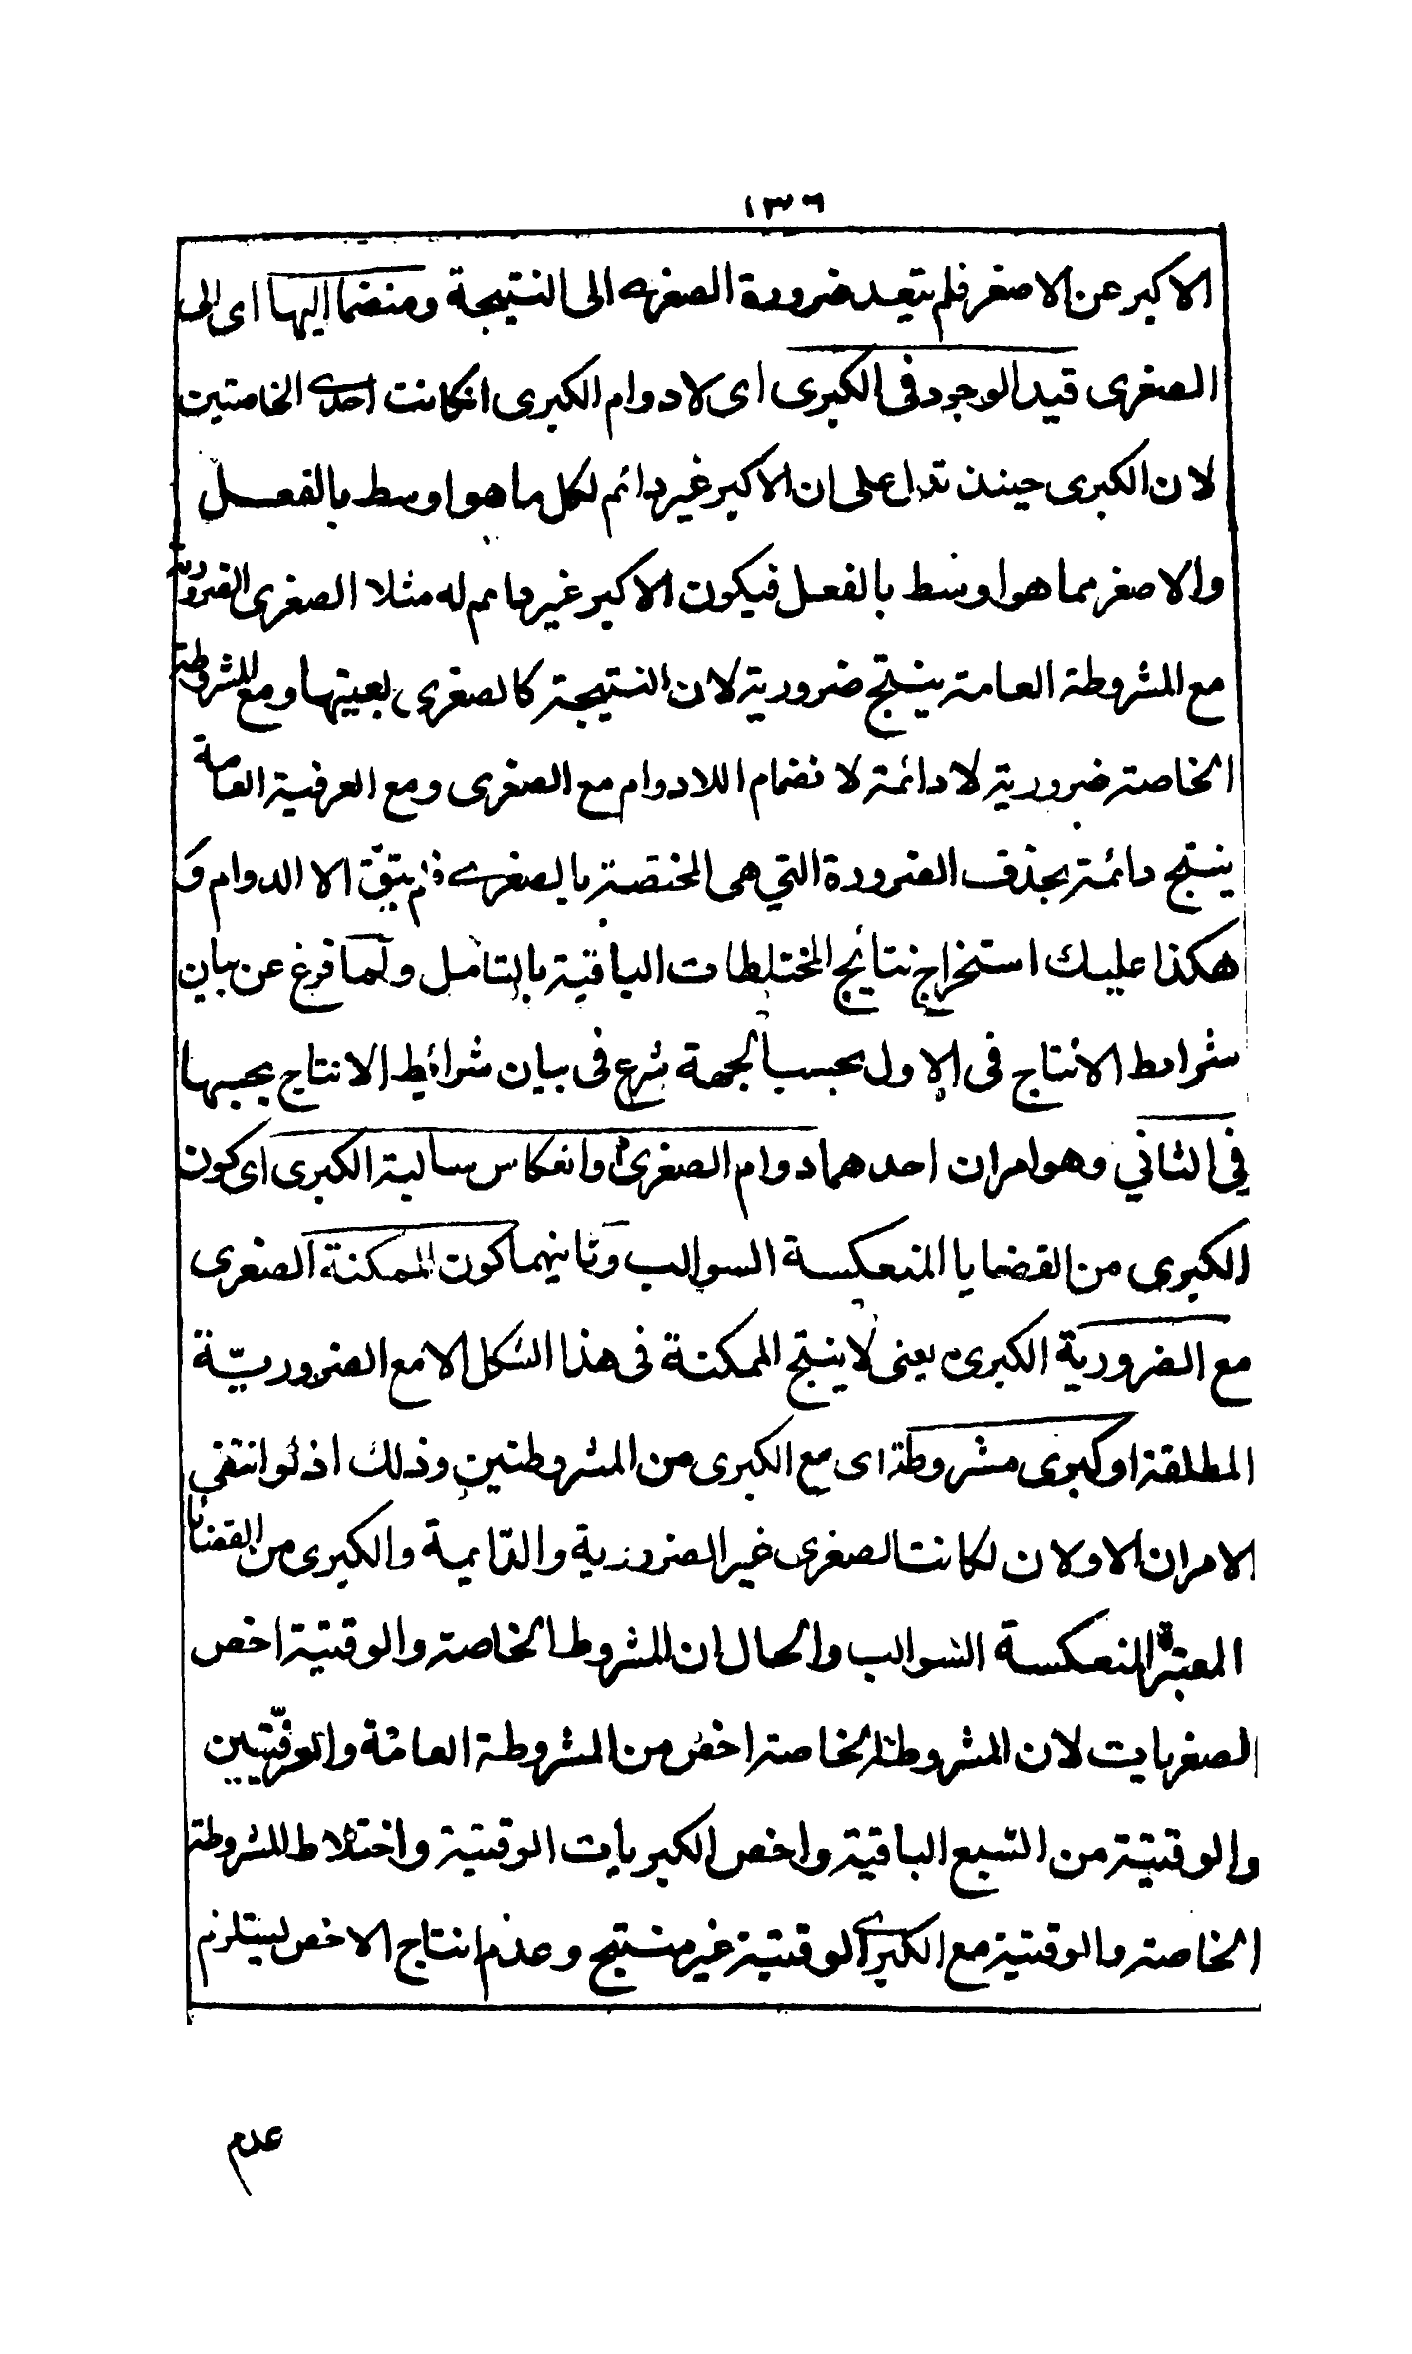 ١٣٦
الاكبر عن الاصغر فلم يتعد ضرورة الصغرى الى النتيجة ومنضما اليها اى الى
الصغرى قيد الوجود فى الكبرى اى لادوام الكبرى انكانت احدى الخاصتين
لان الكبرى حينئذ تدل على ان الاكبر غير دائم لكل ما هو اوسط بالفعل
والاصغر مما هو اوسط بالفعل فيكون الاكبر غير دائم له مثلا الصغرى الضرورية
مع المشروطة العامة ينتج ضرورية لان النتيجة كالصغرى بعينها ومع المشروطة
الخاصة ضرورية لادائمة لانضمام اللادوام مع الصغرى ومع العرفية العامة
ينتج دائمة بحذف الضرورة التى هى المختصة بالصغرى فلم يتبق الا الدوام و
هكذا عليك استخراج نتايج المختلطات الباقية بالتامل ولما فرغ عن بيان
شرايط الانتاج فى الاول بحسب الجهة شرع فى بيان شرائط الانتاج بحسبها
فى الثانى وهو امران احدهما دوام الصغرى او انعكاس سالبة الكبرى اى كون
الكبرى من القضايا المنعكسة السوالب وثانيهما كون الممكنة الصغرى
مع الضرورية الكبرى يعنى لا ينتج الممكنة فى هذا الشكل الا مع الضروريّة
المطلقة او كبرى مشروطة اى مع الكبرى من المشروطتين وذلك اذ لو انتفى
الامران الاولان لكانت الصغرى غير الضرورية والدّايمة والكبرى من القضايا
المعتبرة المنعكسة السوالب والحال ان المشروطة الخاصة والوقتية اخص
الصغريات لان المشروطة الخاصة اخص من المشروطة العامّة والعرفيّتين
والوقتية من السّبع الباقية واخص الكبريات الوقتية واختلاط المشروطة
الخاصة والوقتية مع الكبرى الوقتية غير منتج وعدم انتاج الاخص ليستلزم
عدم